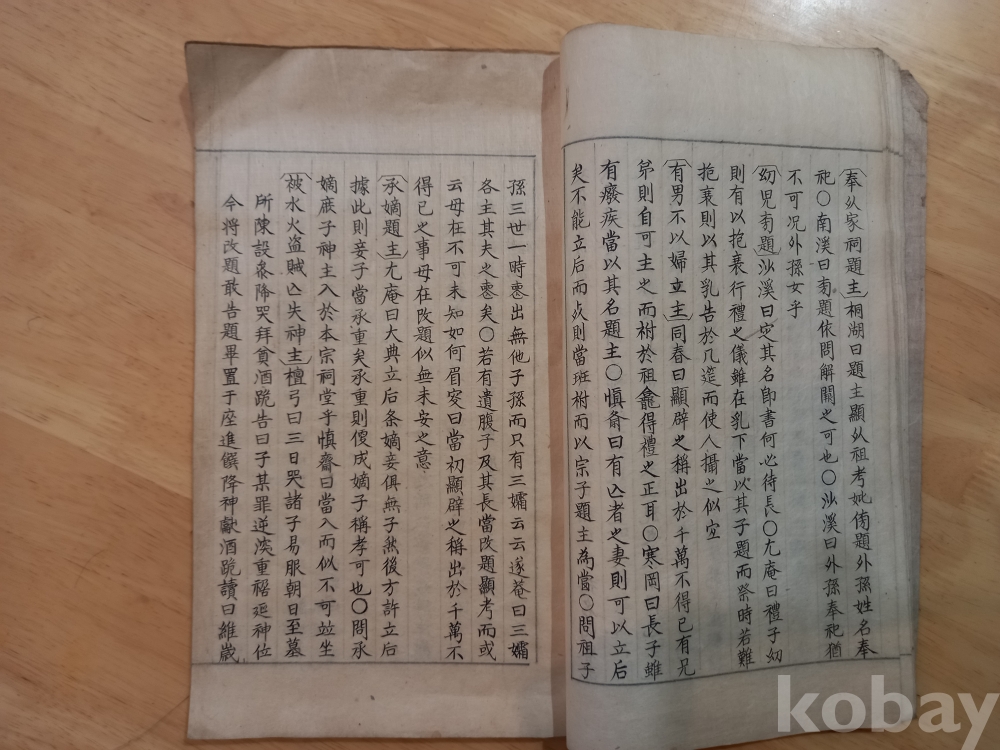 奉外家祠題主桐湖曰題主顯外祖考妣傍題外孫姓名奉
祀○南溪曰旁題依問解闕之可也○沙溪曰外孫奉祀猶
不可况外孫女乎
幼児旁題沙溪曰定其名即書何必待長○尤庵曰禮子幼
則有以抱衰行禮之儀雖在乳下當以其子題而祭時若難
抱衰則以其乳告於几筵而使人攝之似宜
有男不以婦立主同春曰顯辟之稱出於千萬不得已有兄
弟則自可主之而祔於祖龕得禮之正耳○寒岡曰長子雖
有癈疾當以其名題主○愼俞曰有亾者之妻則可以立后
矣不能立后而 則當班祔而以宗子題主為當○問祖子
孫三世一時 出無他子孫而只有三孀云云遂菴曰三孀
各主其夫之 矣○若有遺腹子及其長當改題顯考而或
云母在不可未知如何眉叟曰當初顯辟之稱出於千萬不
得已之事母在改題似無未安之意
承嫡題主尤庵曰大典立后条嫡妾俱無子然後方許立后
據此則妾子當承重矣承重則便成嫡子稱孝可也○問承
嫡庶子神主入於本宗祠堂乎愼齋曰當入而似不可並坐
被水火盜賊亾失神主檀弓曰三日哭諸子易服朝日至墓
所陳設叅降哭拜 酒跪告曰子某罪逆深重禍延神位
今將改題敢告題畢置于座進饌降神獻酒跪讀曰維歲